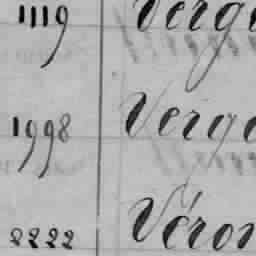 1119 Verge
1998 Verge
2222 Véron